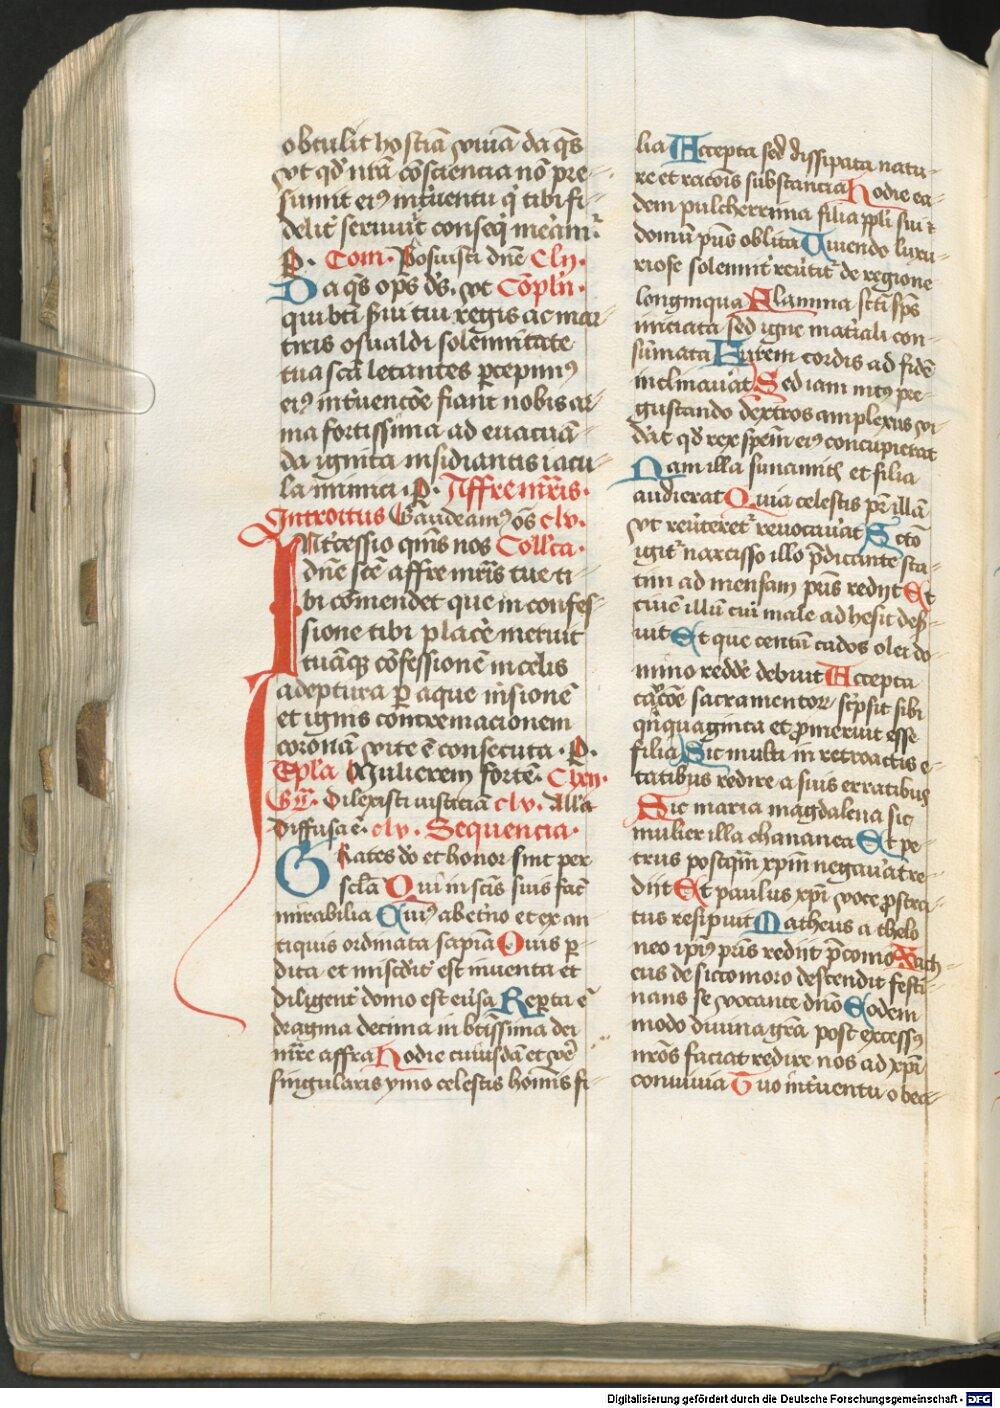 obtulit hostiā viuā da qs̄
vt qd' nr̄a cōsciencia nō pre-
sumit ei9 int'uentu q' tibi fi-
delit' seruiuit conseq' mēam'
P. Com̄. Posuisti dn̄e Clv.
Da qs̄ op̄s ds̄. vt Cōpln̄.
qui bt̄i s'ui tui regis ac mar-
tiris osualdi solemnitate
tua sc̄a letantes p̄cepim9
ei9 int'uencōe fiant nobis ar-
ma fortissima ad euacuā-
da ignita insidiantis iacu-
la inimici. P. Affre mr̄is.
Introitus Gaudeam9 ōs clv.
INt'cessio qm̄s nos Coll'ca.
dn̄e sc̄e affre mr̄is tue ti-
bi cōmendet que in confes-
sione tibi placē' meruit
tuāq3 cōfessionem in celis
adeptura p̄ aque insionē
et ignis contremacionem
coronā vite ē consecuta. P.
Epl'a Mulierem fortē. Clxn.
Gr̄. Dilexisti iusticiā clv. All'a
Diffusa ē. clv. Sequencia.
GRates do et honor sint per
scl'a Qui in sc̄is suis fac̄
mirabilia Cui9 ab et'no et ex an-
tiquis ordinata sap̄ia Quis p̄-
dita et miscdit' est inuenta et
diligent' domo est eu'sa Rep̄ta ē
dragma decima in bt̄issima dei
mr̄e affra Hodie cuiusdā et ve'
singularis ymo celestis hom̄is fi-
lia Accepta sed dissipata natu-
re et racōis substancia Hodie ea-
dem pulcherrima filia ppl'i sui et
domū pr̄is oblita Viuendo luxu-
riose solemnit' reu'tit' de regione
longinqua Flamma sc̄ti sp̄s
iniciata sed igne mat'iali con-
sūmata Aurem cordis ad fidē
inclinauāt Sed iam int9 pre-
gustando dextros amplexus vi-
dāt qd' rex speīn ei9 concupierat
Nam illa sunamith et filia
audierat Quia celestis pr̄ illā
vt reu'teret' reuocauāt Sc̄tō
igit' narcisso illo p̄dicante sta-
tim ad mensam pr̄is redijt Et
ciuē illū cui male adhesit des'-
uit Et que centū cados olei do-
mino redde' debuit Accepta
cac̄ōe sacramentor' sc'psit sibi
qn̄quaginta et p̄meruit esse
filia Sic multi in retroactis e-
tatibus redire a suis erratibus
Sic maria magdalena sic
mulier illa chananea Et pe-
trus postqm̄ xpm̄ negauāt re-
dijt Et paulus xpi' voce p̄stra-
tus resipuit Matheus a thelo
neo ip̄i9 pr̄is redijt p̄como Zach
eus de siccomoro descendit festi-
nans se vocante dn̄o Eodem
modo diuina gr̄a post excess9
nr̄os faciat redire nos ad xpi'
conuiuia Tuo int'uentu o bea-
Digitalisierung gefördert durch die Deutsche Forschungsgemeinschaft - DFG